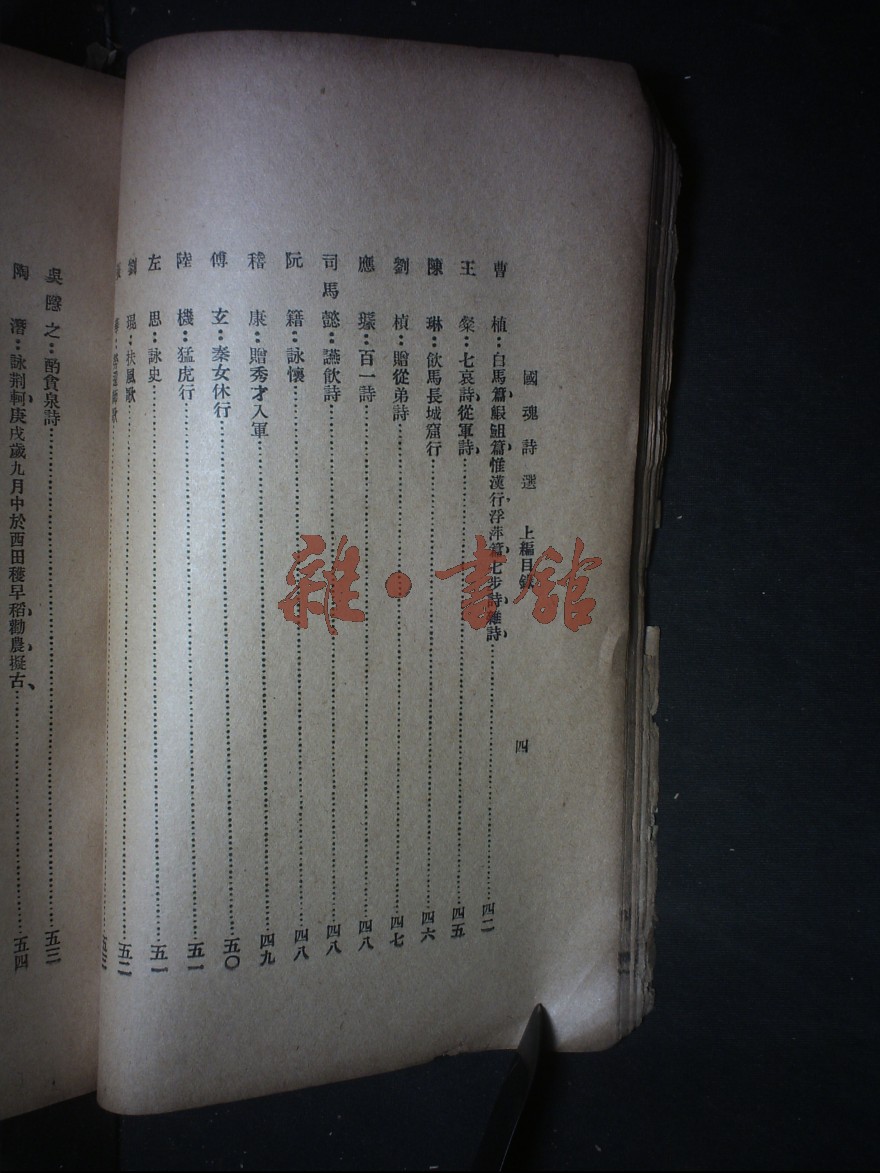 國魂詩選 上編目錄 四
曹植：白馬篇、鰕䱇篇、惟漢行、浮萍篇、七步詩、雜詩、……四二
王粲：七哀詩、從軍詩、……四五
陳琳：飲馬長城窟行……四六
劉楨：贈從弟詩……四七
應璩：百一詩……四八
司馬懿：讌飲詩……四八
阮籍：詠懷……四八
嵇康：贈秀才入軍……四九
傅玄：秦女休行……五〇
陸機：猛虎行……五一
左思：詠史……五一
劉琨：扶風歌……五二
吳隱之：酌貪泉詩……五三
陶潛：詠荆軻、庚戌歲九月中於西田穫早稻、勸農、擬古、……五四
雜·書館